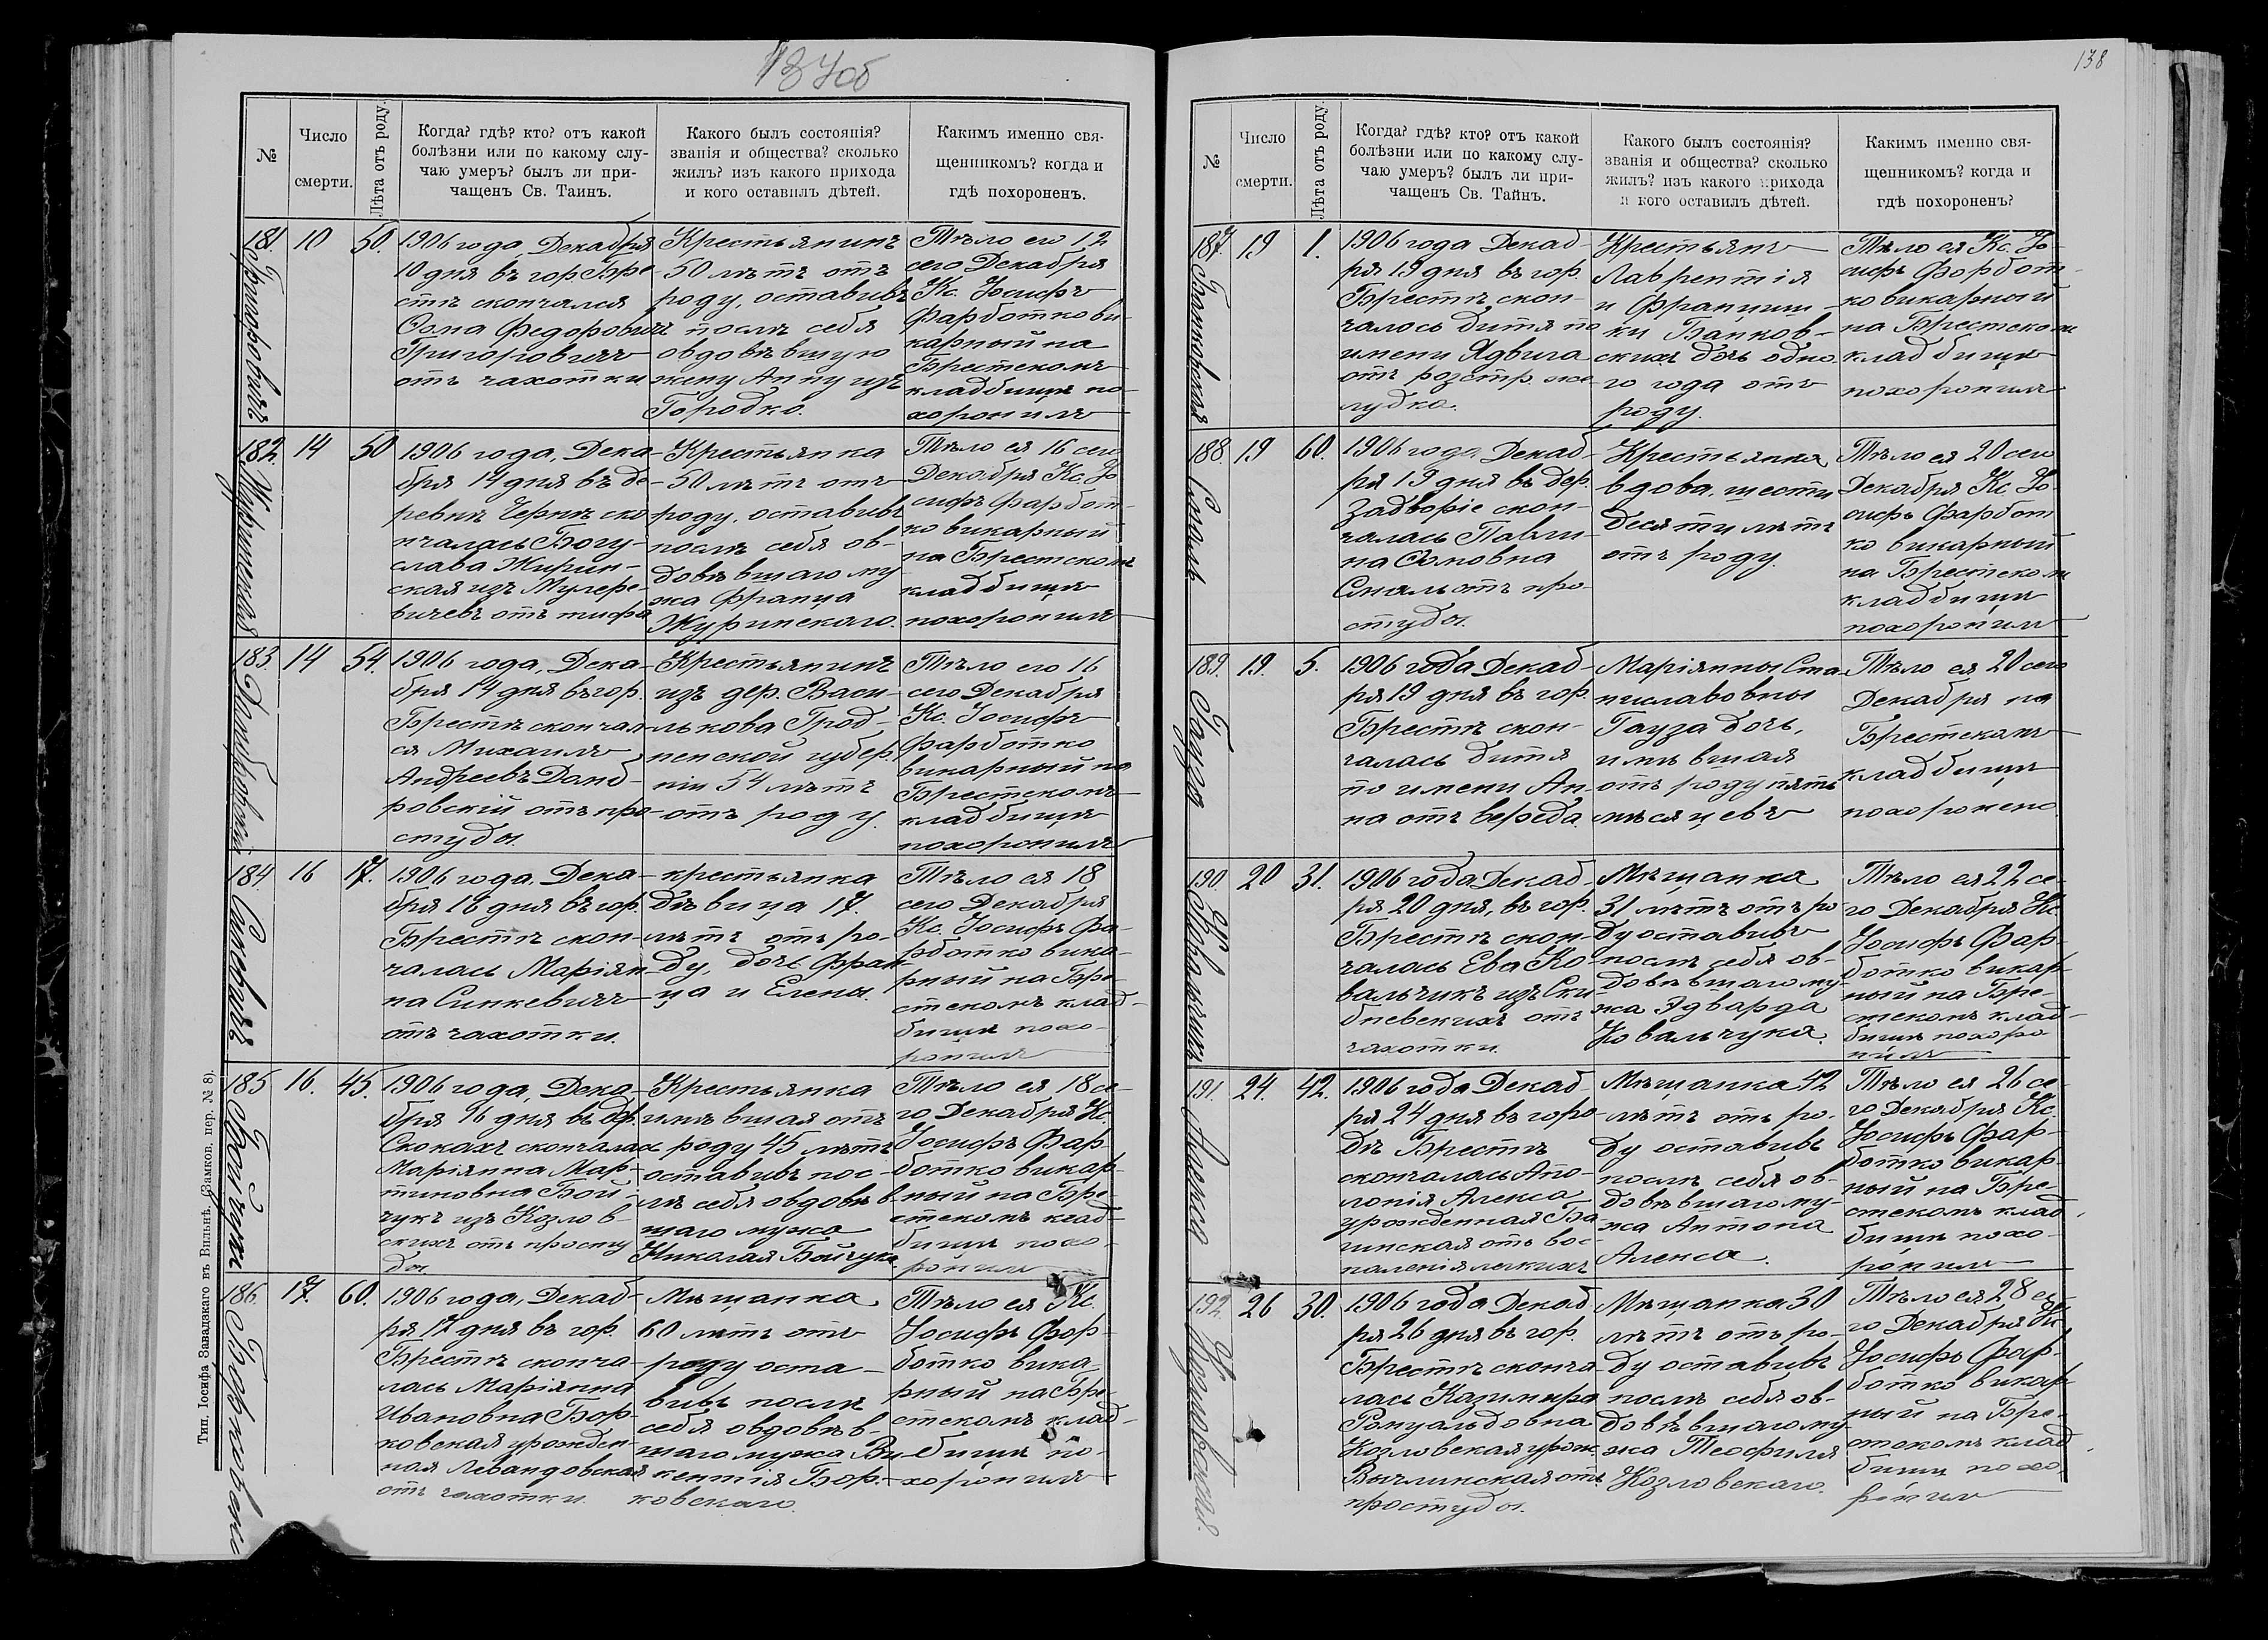 137об
№
Число
смерти.
Лѣта отъ роду.
Когда? гдѣ? кто? отъ какой
болѣзни или по какому слу-
чаю умеръ? былъ ли при-
чащенъ Св. Таинъ.
Какого былъ состоянія?
званія и общества? сколько
жилъ? изъ какого прихода
и кого оставилъ дѣтей.
Какимъ именно свя-
щенникомъ? когда и
гдѣ похороненъ.
181.
Григоровичъ
10
50.
1906 года, Декабря
10 дня въ гор. Бре-
стѣ скончался
Ѳома Федоровичъ
Григоровичъ
отъ чахотки
Крестьянинъ
50 лѣтъ отъ
роду, оставивъ
послѣ себя
овдовѣвшую
жену Анну изъ
Городко.
Тѣло его 12
сего Декабря
Кс. Іосифъ
Фарботко ви-
карный на
Брестскомъ
кладбищѣ по-
хоронилъ
182.
Журинская
14
50
1906 года, Дека-
бря 14 дня въ де-
ревнѣ Чернѣ ско
нчалась Богу-
слава Журин-
ская изъ
отъ тифа
Крестьянка
50 лѣтъ отъ
роду, оставивъ
послѣ себя ов-
довѣвшаго му
жа Франца
Журинскаго.
Тѣло ея 16 сего
Декабря Кс. Іо
сифъ Фарбот-
ко викарный
на Брестскомъ
кладбищѣ
похоронилъ
183.
Домбровскій
14
54.
1906 года, Дека-
бря 14 дня въ гор.
Брестѣ скончал
ся Михаилъ
Андреевъ Домб-
ровскій отъ про-
студы.
Крестьянинъ
изъ дер. Васи-
лькова Грод-
ненской губер-
ніи 54 лѣтъ
отъ роду.
Тѣло его 16
сего Декабря
Кс. Іосифъ
Фарботко
викарный на
Брестскомъ
кладбищѣ
похоронилъ
184.
Синкевичъ
16
17.
1906 года, Дека-
бря 16 дня въ гор.
Брестѣ скон-
чалась Маріян
на Синкевичъ
отъ чахотки.
крестьянка
дѣвица 17.
лѣтъ отъ ро-
ду, дочь Фран
ца и Елены.
Тѣло ея 18
сего Декабря
Кс. Іосифъ Фа-
рботко вика-
рный на Бре-
стскомъ клад-
бищѣ похо-
ронилъ
185
Бойчукъ
16.
45.
1906 года, Дека-
бря 16 дня въ дер.
Скокахъ скончалас
Маріянна Мар-
тиновна Бой-
чукъ изъ Козлов-
скихъ отъ просту
ды.
Крестьянка
имѣвшая отъ
роду 45 лѣтъ
оставивъ пос-
лѣ себя овдовѣв-
шаго мужа
Николая Бойчука
Тѣло ея 18 се-
го Декабря Кс.
Іосифъ Фар-
ботко викар-
ный на Бре-
стскомъ клад-
бищѣ похо-
ронилъ
186.
Борковская
17.
60.
1906 года, Декаб-
ря 17 дня въ гор.
Брестѣ сконча-
лась Маріянна
Ивановна Бор-
ковская урожден-
ная Левандовская
отъ чахотки.
Мѣщанка
60 лѣтъ отъ
роду оста-
вивъ послѣ
себя овдовѣв-
шаго мужа Ви
кентія Бор-
ковскаго.
Тѣло ея Кс.
Іосифъ Фар-
ботко вика-
рный на Бре-
стскомъ клад-
бищѣ по-
хоронилъ
Тип. Іосифа Завадзкаго въ Вильнѣ. (Замков. пер. № 8).
138
№
Число
смерти.
Лѣта отъ роду.
Когда? гдѣ? кто? отъ какой
болѣзни или по какому слу-
чаю умеръ? былъ ли при-
чащенъ Св. Тайнъ.
Какого былъ состоянія?
званія и общества? сколько
жилъ? изъ какого прихода
и кого оставилъ дѣтей.
Какимъ именно свя-
щенникомъ? когда и
гдѣ похороненъ?
187.
Банковская
19
1.
1906 года Декаб-
ря 19 дня въ гор.
Брестѣ скон-
чалось дитя по
имени Ядвига
отъ розстр. же-
лудка.
Крестьянъ
Лаврентія
и Францишк-
ки Банков-
скихъ дочь одно-
го года отъ
роду.
Тѣло ея Кс. Іо-
сифъ Фарбот-
ко викарный
на Брестскомъ
кладбищѣ
похоронилъ
188.
Смаль
19
60.
1906 года Декаб-
ря 19 дня въ дер.
Задворіе скон-
чалась Павли-
на
Смаль отъ про-
студы.
Крестьянка
вдова, шести
десяти лѣтъ
отъ роду.
Тѣло ея 20 сего
Декабря Кс. Іо-
сифъ Фарбот
ко викарный
на Брестском
кладбищѣ
похоронилъ
189.
Гауза
19.
5.
1906 года Декаб-
ря 19 дня въ гор.
Брестѣ скон-
чалась дитя
по имени Ан-
на отъ вереда.
Маріянны Ста-
ниславовны
Гауза дочь,
имѣвшая
отъ роду пять
мѣсяцевъ
Тѣло ея 20 сего
Декабря на
Брестскомъ
кладбищѣ
похоронено
190.
Ковальчикъ
20
31.
1906 года Декаб-
ря 20 дня, въ гор.
Брестѣ скон-
чалась Ева Ко-
вальчикъ изъ Ски
бневскихъ отъ
чахотки.
Мѣщанка
31 лѣтъ отъ ро-
ду оставивъ
послѣ себя ов-
довѣвшаго му-
жа Эдварда
Ковальчука.
Тѣло ея 22 се-
го Декабря Кс.
Іосифъ Фар-
ботко викар-
ный на Бре-
стскомъ клад-
бищѣ похоро-
нилъ
191.
Алекса
24.
42.
1906 года Декаб-
ря 24 дня въ горо-
дѣ Брестѣ
скончалась Апо-
лонія Алекса
урожденная Ба
гинская отъ вос-
паленія легкихъ
Мѣщанка 42
лѣтъ отъ ро-
ду оставивъ
послѣ себя ов-
довѣвшаго му-
жа Антона
Алекса.
Тѣло ея 26 се-
го Декабря Кс.
Іосифъ Фар-
ботко викар-
ный на Бре-
стскомъ клад-
бищѣ похо-
ронилъ
192.
Козловская.
26
30.
1906 года Декаб
ря 26 дня въ гор.
Брестѣ сконча
лась Казимира
Ромуальдовна
Козловская урож.
отъ
простуды.
Мѣщанка 30
лѣтъ отъ ро-
ду оставивъ
послѣ себя ов-
довѣвшаго му-
жа Теофиля
Козловскаго.
Тѣло ея 28 се-
го Декабря Кс.
Іосифъ Фар-
ботко викар-
ный на Бре-
стскомъ клад-
бищѣ похо-
ронилъ